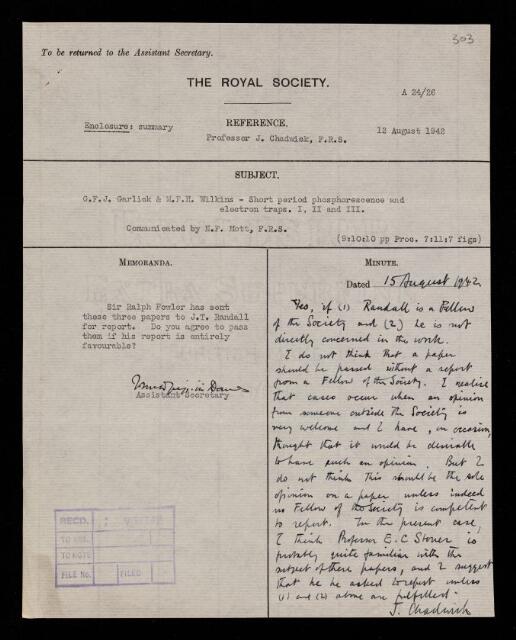 303
To be returned to the Assistant Secretary.
THE ROYAL SOCIETY.
A 24/26
Enclosure: summary
REFERENCE.
12 August 1942
Professor J. Chadwick, F.R.S.
SUBJECT.
G.F.J. Garlick & M.F.H. Wilkins - Short period phosphorescence and
electron traps. I, II and III.
Communicated by N.F. Mott, F.R.S.
(9:10:10 pp Proc. 7:11:7 figs)
MEMORANDA.
Sir Ralph Fowler has sent
these three papers to J.T. Randall
for report. Do you agree to pass
them if his report is entirely
favourable?
Assistant Secretary
RECD.
TO ANS.
TO NOTE
FILE No.
FILED
MINUTE.
Dated 15 August 1942
Yes, if (1) Randall is a Fellow
of the Society and (2) he is not
directly concerned in the work.
I do not think that a paper
should be passed without a report
from a Fellow of the Society. I realise
that cases occur when an opinion
from someone outside the Society is
very welcome and I have, on occasion,
thought that it would be desirable
to have such an opinion. But I
do not think this should be the sole
opinion on a paper unless indeed
no Fellow of the Society is competent
to report. In the present case,
I think Professor E. C. Stoner is
probably quite familiar with the
subject of these papers, and I suggest
that he be asked to report unless
(1) and (2) above are fulfilled.
J. Chadwick